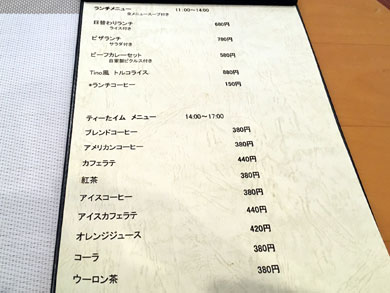 ランチメニュー 11:00～14:00
全メニュースープ付き
日替わりランチ 680円
ライス付き
ピザランチ 780円
サラダ付き
ビーフカレーセット 580円
自家製ピクルス付き
Tino風 トルコライス 880円
*ランチコーヒー 150円
ティーたイム メニュー 14:00～17:00
ブレンドコーヒー 380円
アメリカンコーヒー 380円
カフェラテ 440円
紅茶 380円
アイスコーヒー 380円
アイスカフェラテ 440円
オレンジジュース 420円
コーラ 380円
ウーロン茶 380円